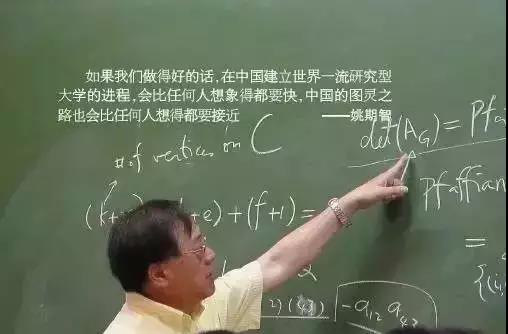 如果我们做得好的话，在中国建立世界一流研究型
大学的进程，会比任何人想象得都要快，中国的图灵之
路也会比任何人想得都要接近 ——姚期智
# of vertices in C
det(A_G) = Pfa
Pfaffian
+e) + (f+1) =
=
2
-a₁₂ a